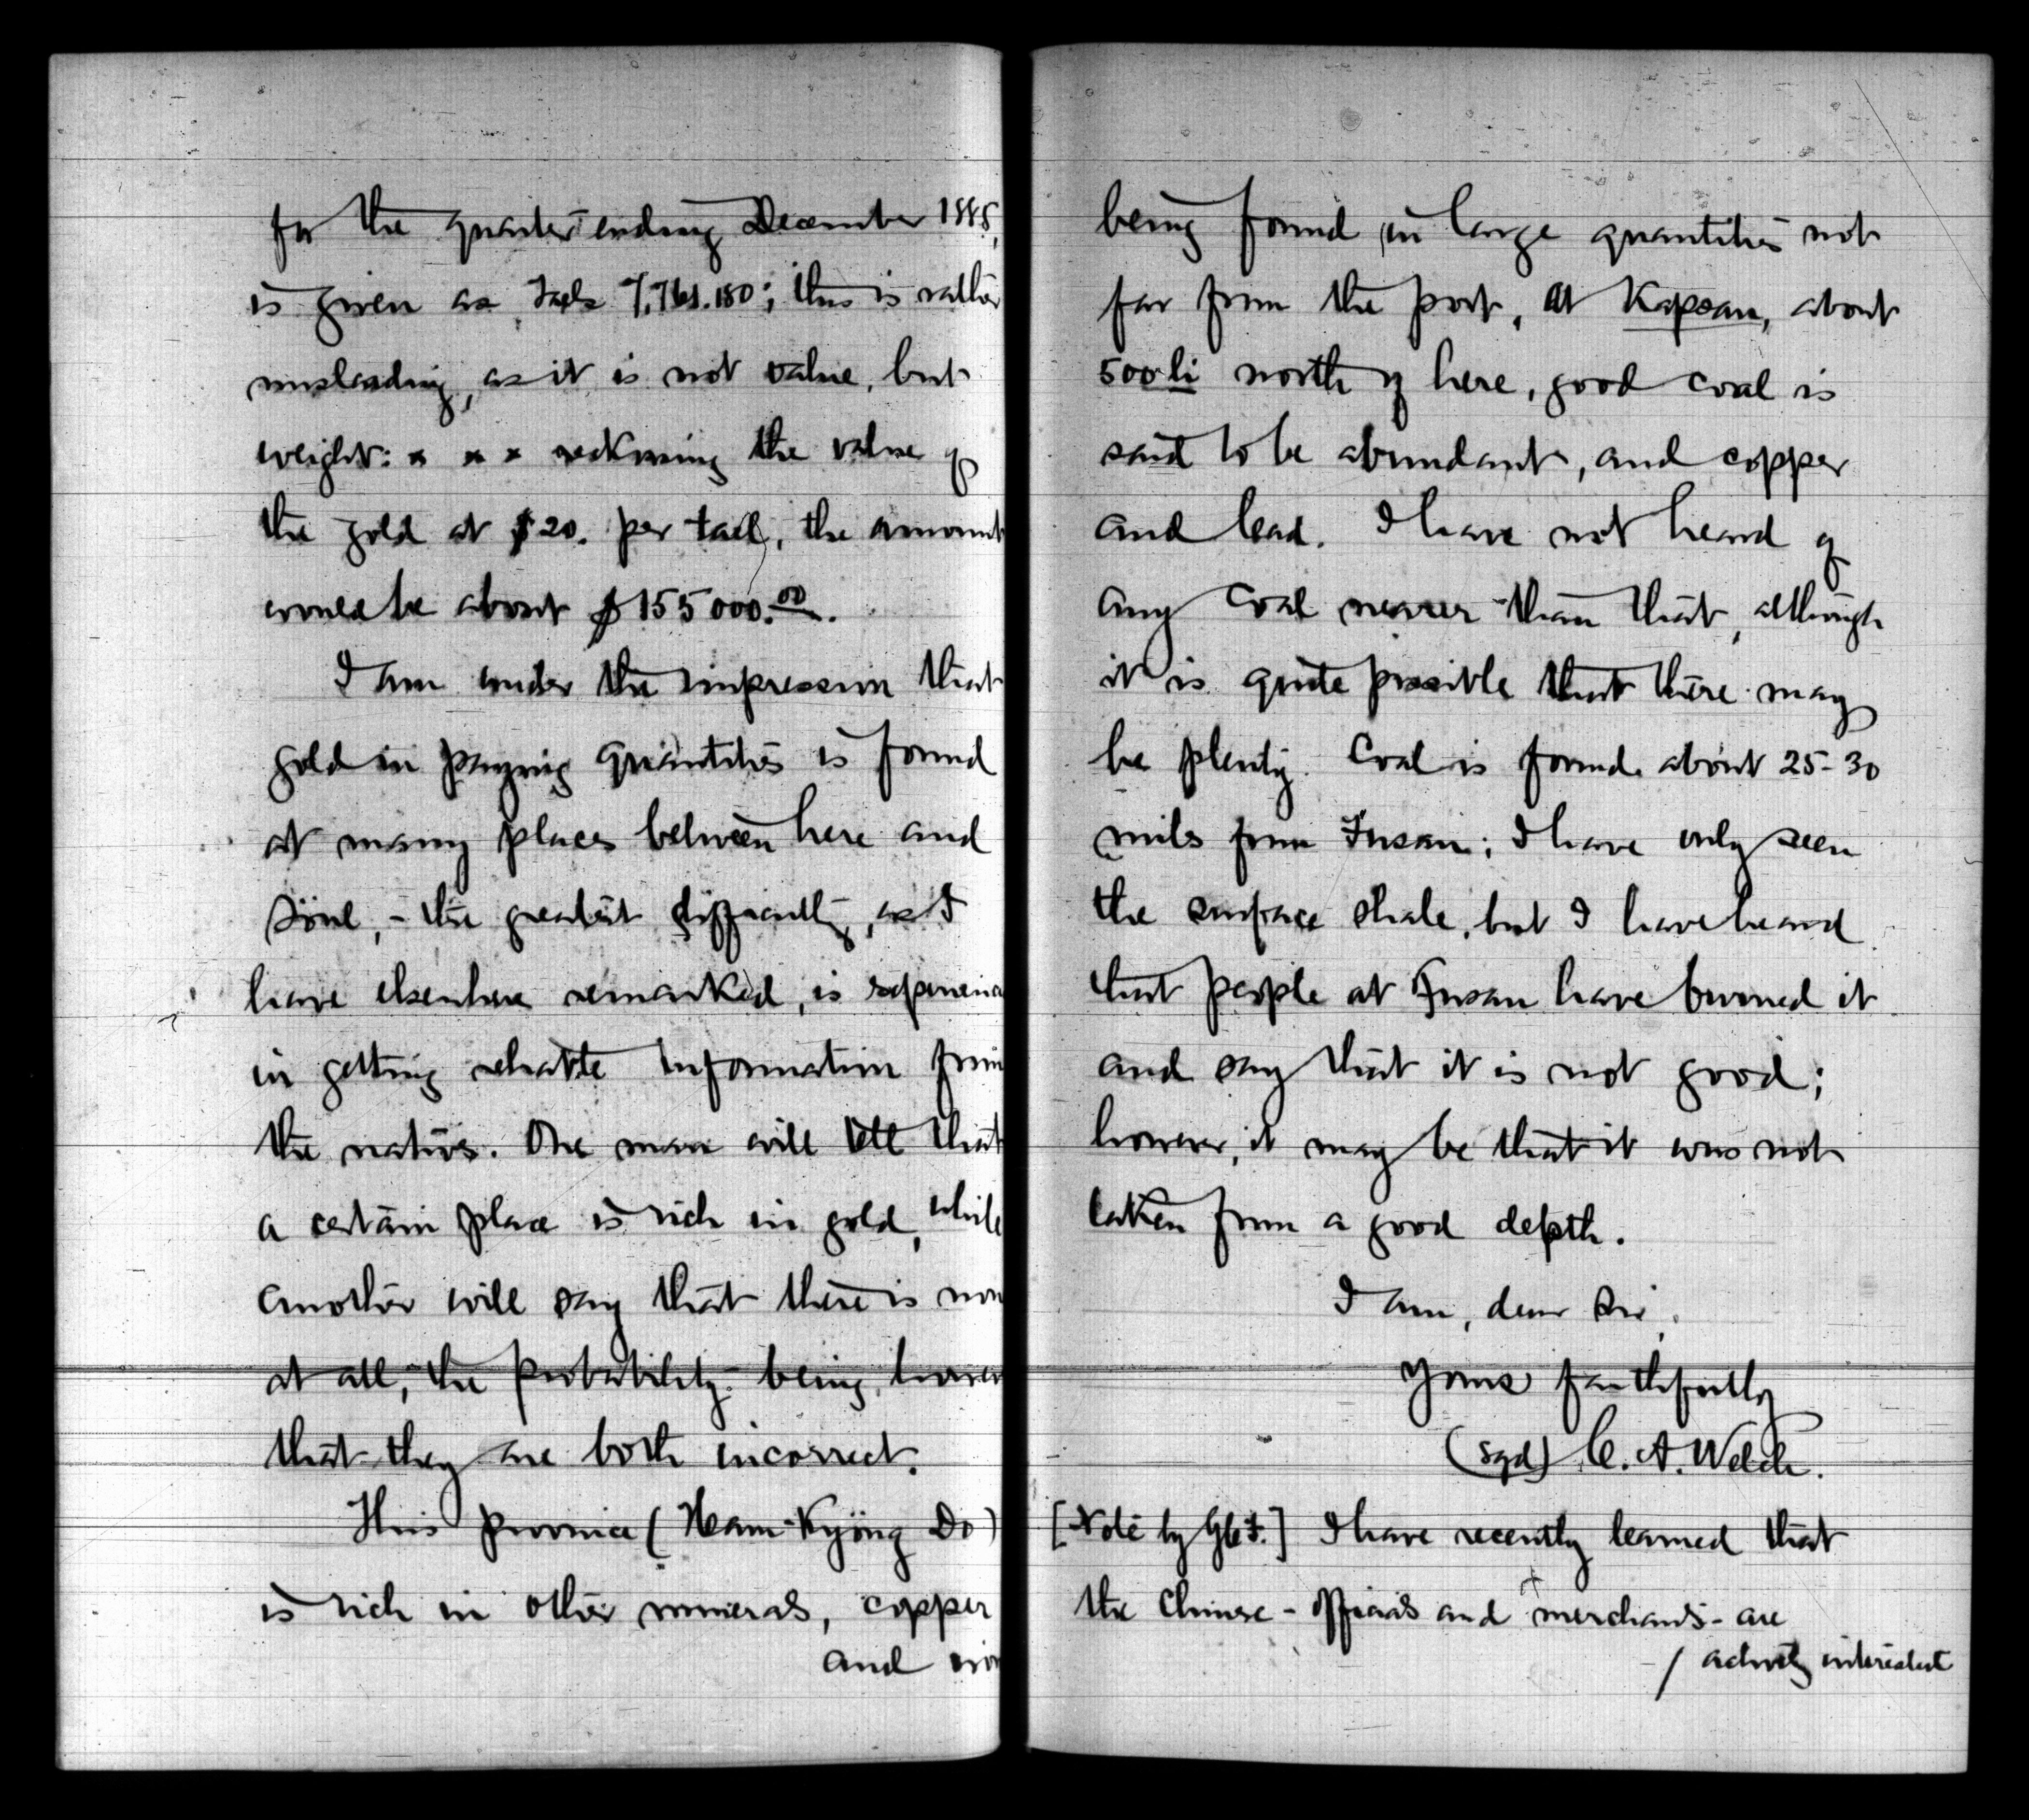 for the quarter ending December 1885,
is given as Taels 7,761.180; this is rather
misleading, as it is not value, but
weight: x x x reckoning the value of
the gold at $20. per tael, the amount
would be about $155000.00.
I am under the impression that
gold in paying quantities is found
at many places between here and
Söul, - the greatest difficulty, as I
have elsewhere remarked, is experienc
in getting reliable information from
the natives. One man will tell that
a certain place is rich in gold, while
another will say that there is non
at all, the probability being, howev
that they are both incorrect.
This province (Ham-Kyöng Do)
is rich in other minerals, copper
and iron
being found in large quantities not
far from the port, At Kapsan, about
500 li north of here, good coal is
said to be abundant, and copper
and lead. I have not heard of
any coal nearer than that, although
it is quite possible that there may
be plenty. Coal is found about 25-30
miles from Fusan; I have only seen
the surface shale, but I have heard
that people at Fusan have burned it
and say that it is not good;
however, it may be that it was not
taken from a good depth.
I am, dear Sir,
Yours faithfully
(sgd) C. A. Welch.
[Note by GCF.] I have recently learned that
the Chinese - officials and merchants - are
/ actively interested